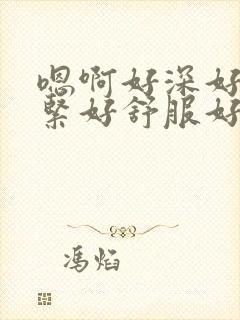 嗯啊好深好
紧好舒服好
冯焰